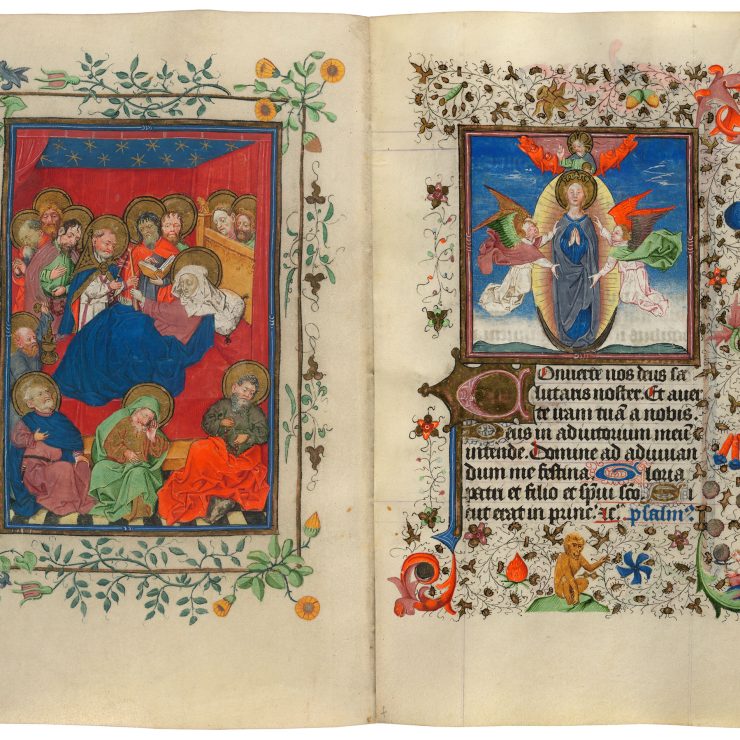 Conuerte nos deus sa
lutaris noster. Et auer
te iram tuā a nobis.
Deus in adiutorium meū
intende. Domine ad adiuuan
dum me festina. Gloria
patri et filio et sp̄ui sc̄o. S
icut erat in princ. ꝛc. psalm.